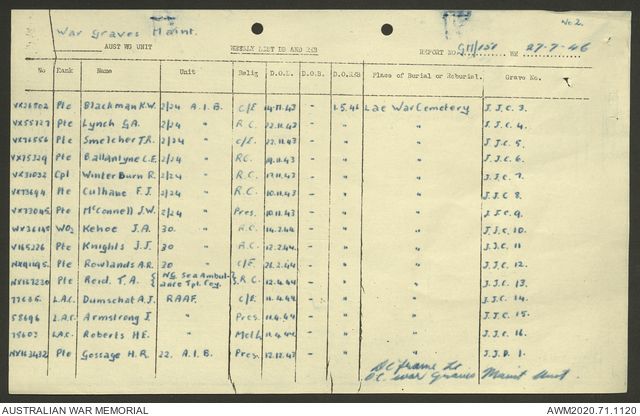 No 2.
War Graves Maint.
AUST WG UNIT WEEKLY LIST DB AND REB REPORT NO G11/151 WE 27-7-46
No Rank Name Unit Relig D.O.D. D.O.B. D.OREB Place of Burial or Reburial. Grave No.
VX26502 Pte Blackman K.W. 2/24 A.I.B. C/E 14.11.43 - 1.5.46 Lae War Cemetery J.J.C. 3.
VX55727 Pte Lynch G.A. 2/24 " R.C. 22.11.43 - " " J.J.C. 4.
Pte Smelcher T.R. 2/24 " C/E 22.11.43 - " " J.J.C. 5.
VX75329 Pte Ballantyne C.E. 2/24 " R.C. 19.11.43 - " " J.J.C. 6.
VX31032 Cpl Winter Burn R. 2/24 " R.C. 17.11.43 - " " J.J.C. 7.
VX73694 Pte Culhane F.J. 2/24 " R.C. 10.11.43 - " " J.J.C 8.
VX73045 Pte McConnell J.W. 2/24 " Pres. 10.11.43 - " " J.J.C. 9.
WX36140 WO2 Kehoe J.A. 30. " R.C. 14.2.44 - " " J.J.C. 10.
V165226 Pte Knights J.J. 30. " R.C. 12.2.44 - " " J.J.C. 11
NX91195 Pte Rowlands A.R. 30 " C/E 21.2.44 - " " J.J.C. 12.
NX167230 Pte Reid. T.A. { NG. Sea Ambulance Tpt. Coy. } R.C. 12.4.44 - " " J.J.C. 13.
77626 L.A.C. Dumschat A.J. R.A.A.F. C/E 11.4.44 - " " J.J.C. 14.
58696 L.A.C. Armstrong I. " Pres. 11.4.44 - " " J.J.C. 15.
75607 L.A.C. Roberts H.E. " Meth 11.4.44 - " " J.J.C. 16.
NX163432 Pte Gossage H.R. 22. A.I.B. Pres. 12.12.43 - " " J.J.D. 1.
Lt
O.C. War Graves Maint Unit
AUSTRALIAN WAR MEMORIAL AWM2020.71.1120